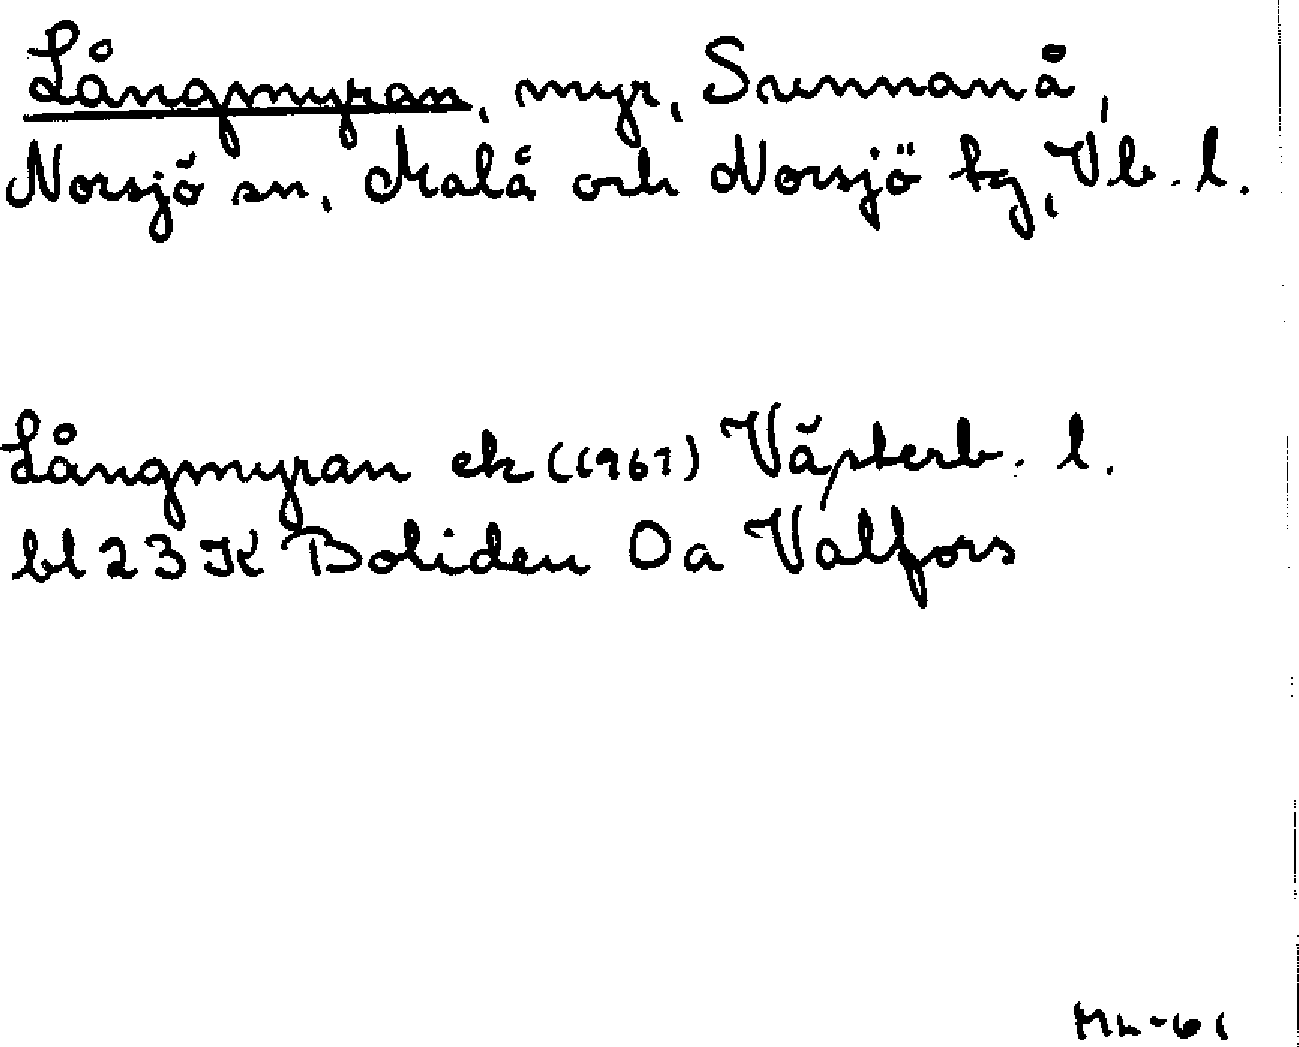 Långmyran, myr, Svennanå,
Norsjö sn, Malå och Norsjö tg, Vb. l.
Långmyran ek (1961) Västerb. l.
bl 23 K Boliden 0a Valfors